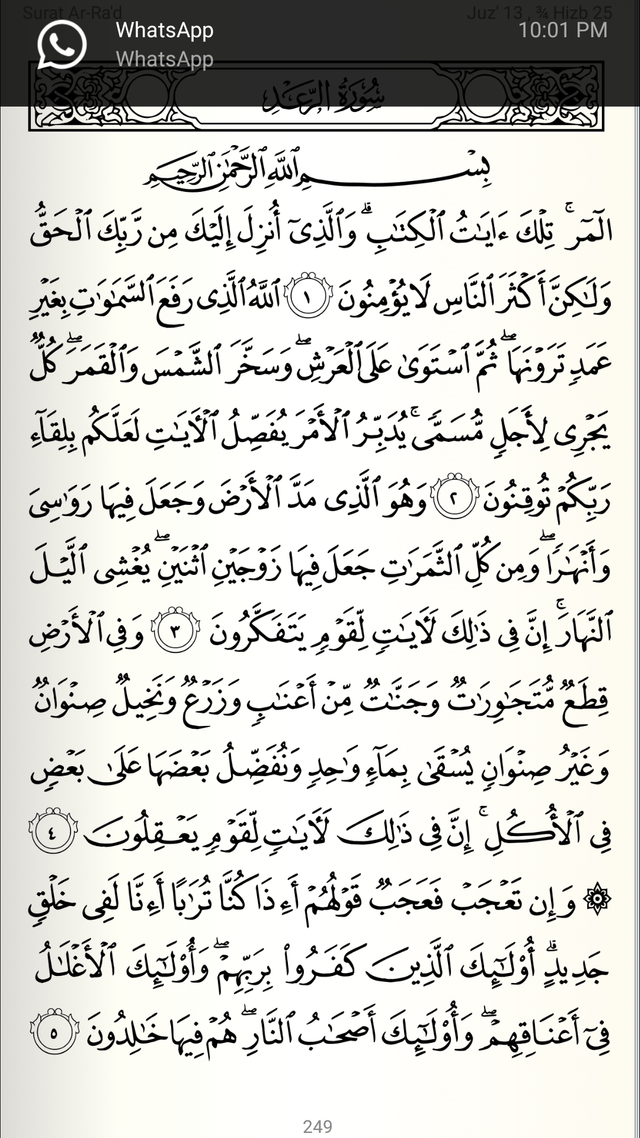 Surat Ar-Ra'd Juz' 13 , ¾ Hizb 25
WhatsApp 10:01 PM
WhatsApp
سُورَةُ الرَّعْدِ
بِسْمِ ٱللَّهِ ٱلرَّحْمَٰنِ ٱلرَّحِيمِ
الٓمٓرۚ تِلْكَ ءَايَٰتُ ٱلْكِتَٰبِۗ وَٱلَّذِىٓ أُنزِلَ إِلَيْكَ مِن رَّبِّكَ ٱلْحَقُّ
وَلَٰكِنَّ أَكْثَرَ ٱلنَّاسِ لَا يُؤْمِنُونَ ١ ٱللَّهُ ٱلَّذِى رَفَعَ ٱلسَّمَٰوَٰتِ بِغَيْرِ
عَمَدٍ تَرَوْنَهَاۖ ثُمَّ ٱسْتَوَىٰ عَلَى ٱلْعَرْشِۖ وَسَخَّرَ ٱلشَّمْسَ وَٱلْقَمَرَۖ كُلٌّ
يَجْرِى لِأَجَلٍ مُّسَمًّىۚ يُدَبِّرُ ٱلْأَمْرَ يُفَصِّلُ ٱلْءَايَٰتِ لَعَلَّكُم بِلِقَآءِ
رَبِّكُمْ تُوقِنُونَ ٢ وَهُوَ ٱلَّذِى مَدَّ ٱلْأَرْضَ وَجَعَلَ فِيهَا رَوَٰسِىَ
وَأَنْهَٰرًاۖ وَمِن كُلِّ ٱلثَّمَرَٰتِ جَعَلَ فِيهَا زَوْجَيْنِ ٱثْنَيْنِۖ يُغْشِى ٱلَّيْلَ
ٱلنَّهَارَۚ إِنَّ فِى ذَٰلِكَ لَءَايَٰتٍ لِّقَوْمٍ يَتَفَكَّرُونَ ٣ وَفِى ٱلْأَرْضِ
قِطَعٌ مُّتَجَٰوِرَٰتٌ وَجَنَّٰتٌ مِّنْ أَعْنَٰبٍ وَزَرْعٌ وَنَخِيلٌ صِنْوَانٌ
وَغَيْرُ صِنْوَانٍ يُسْقَىٰ بِمَآءٍ وَٰحِدٍ وَنُفَضِّلُ بَعْضَهَا عَلَىٰ بَعْضٍ
فِى ٱلْأُكُلِۚ إِنَّ فِى ذَٰلِكَ لَءَايَٰتٍ لِّقَوْمٍ يَعْقِلُونَ ٤
۞ وَإِن تَعْجَبْ فَعَجَبٌ قَوْلُهُمْ أَءِذَا كُنَّا تُرَٰبًا أَءِنَّا لَفِى خَلْقٍ
جَدِيدٍۗ أُو۟لَٰٓئِكَ ٱلَّذِينَ كَفَرُوا۟ بِرَبِّهِمْۖ وَأُو۟لَٰٓئِكَ ٱلْأَغْلَٰلُ
فِىٓ أَعْنَاقِهِمْۖ وَأُو۟لَٰٓئِكَ أَصْحَٰبُ ٱلنَّارِۖ هُمْ فِيهَا خَٰلِدُونَ ٥
249